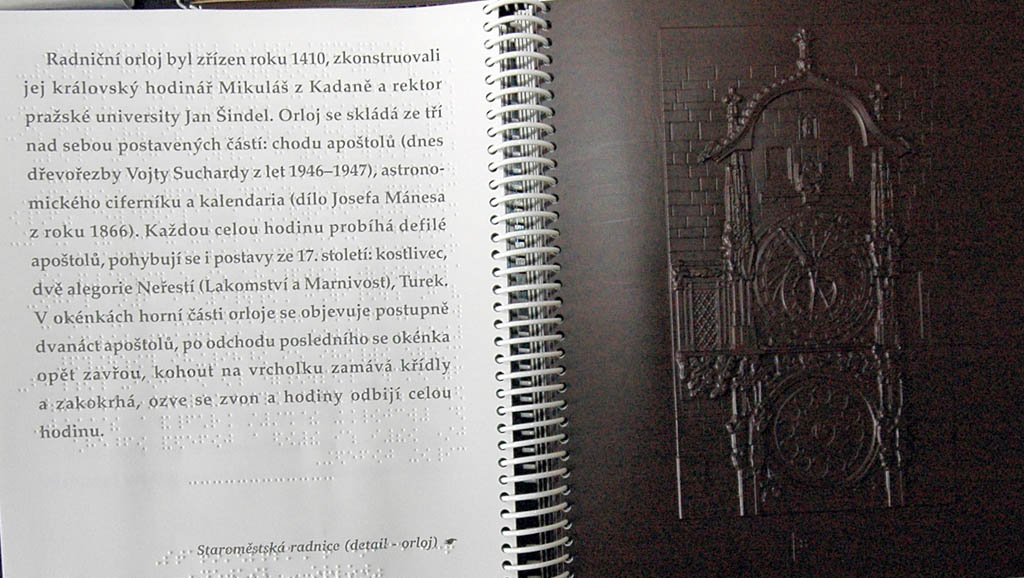 Radniční orloj byl zřízen roku 1410, zkonstruovali
jej královský hodinář Mikuláš z Kadaně a rektor
pražské university Jan Šindel. Orloj se skládá ze tří
nad sebou postavených částí: chodu apoštolů (dnes
dřevořezby Vojty Suchardy z let 1946–1947), astrono-
mického ciferníku a kalendaria (dílo Josefa Mánesa
z roku 1866). Každou celou hodinu probíhá defilé
apoštolů, pohybují se i postavy ze 17. století: kostlivec,
dvě alegorie Neřestí (Lakomství a Marnivost), Turek.
V okénkách horní části orloje se objevuje postupně
dvanáct apoštolů, po odchodu posledního se okénka
opět zavřou, kohout na vrcholku zamává křídly
a zakokrhá, ozve se zvon a hodiny odbijí celou
hodinu.
Staroměstská radnice (detail - orloj)